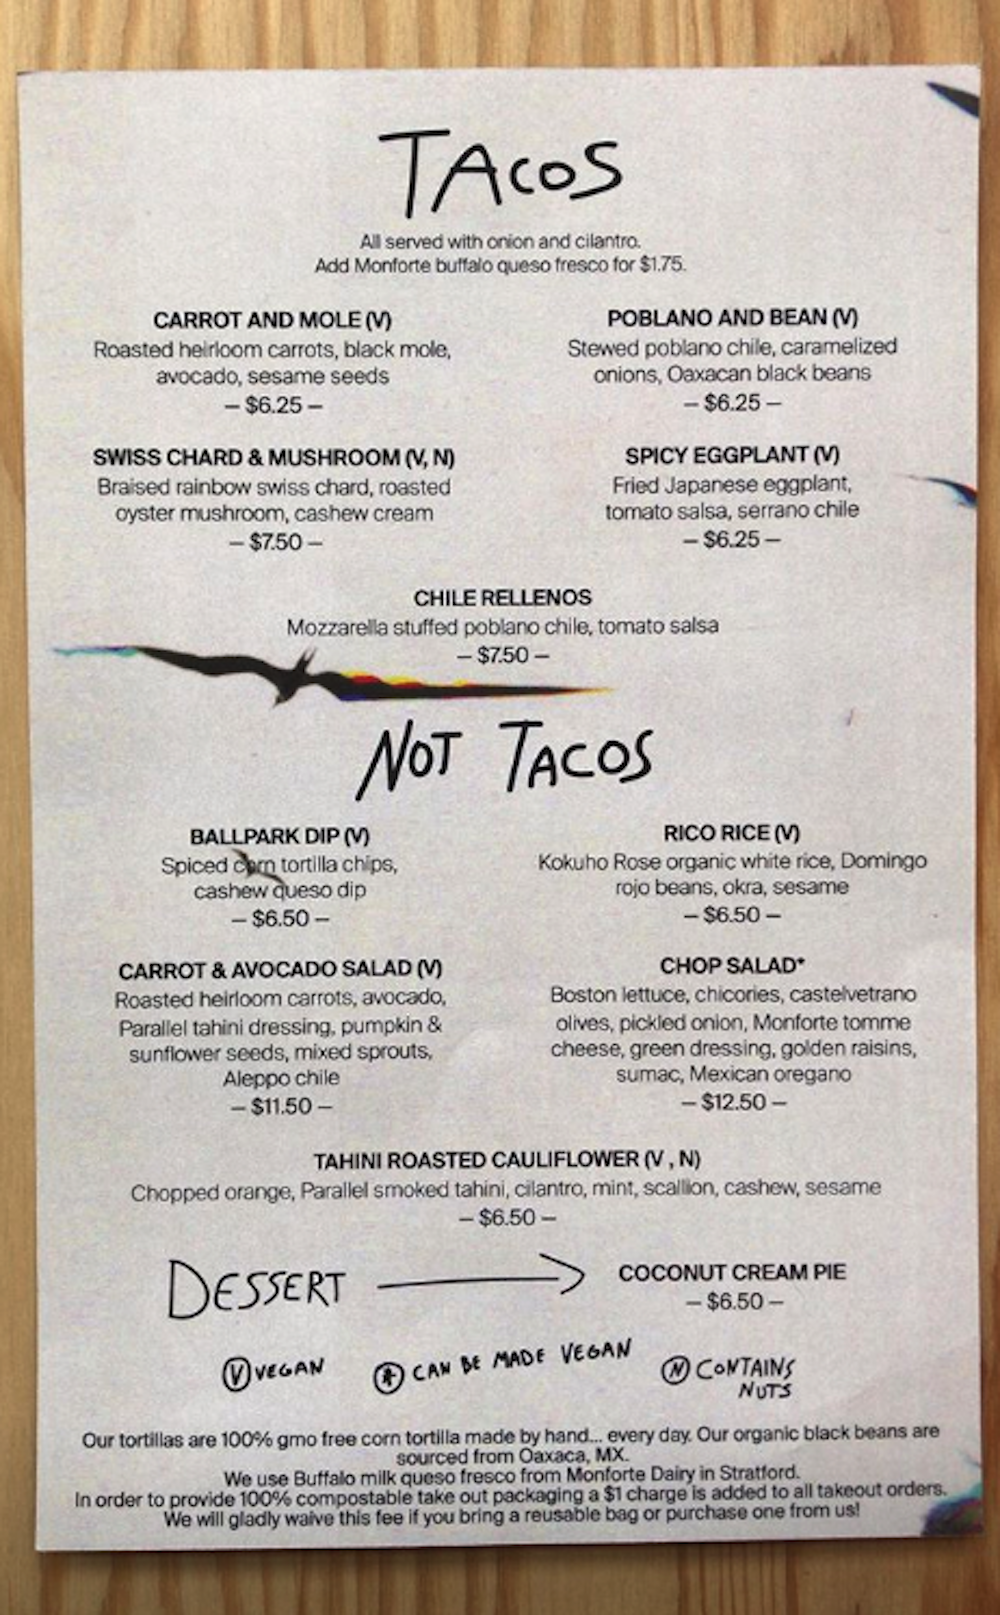 TACOS
All served with onion and cilantro.
Add Monforte buffalo queso fresco for $1.75.
CARROT AND MOLE (V)
Roasted heirloom carrots, black mole,
avocado, sesame seeds
– $6.25 –
POBLANO AND BEAN (V)
Stewed poblano chile, caramelized
onions, Oaxacan black beans
– $6.25 –
SWISS CHARD & MUSHROOM (V, N)
Braised rainbow swiss chard, roasted
oyster mushroom, cashew cream
– $7.50 –
SPICY EGGPLANT (V)
Fried Japanese eggplant,
tomato salsa, serrano chile
– $6.25 –
CHILE RELLENOS
Mozzarella stuffed poblano chile, tomato salsa
– $7.50 –
NOT TACOS
BALLPARK DIP (V)
Spiced corn tortilla chips,
cashew queso dip
– $6.50 –
RICO RICE (V)
Kokuho Rose organic white rice, Domingo
rojo beans, okra, sesame
– $6.50 –
CARROT & AVOCADO SALAD (V)
Roasted heirloom carrots, avocado,
Parallel tahini dressing, pumpkin &
sunflower seeds, mixed sprouts,
Aleppo chile
– $11.50 –
CHOP SALAD*
Boston lettuce, chicories, castelvetrano
olives, pickled onion, Monforte tomme
cheese, green dressing, golden raisins,
sumac, Mexican oregano
– $12.50 –
TAHINI ROASTED CAULIFLOWER (V , N)
Chopped orange, Parallel smoked tahini, cilantro, mint, scallion, cashew, sesame
– $6.50 –
DESSERT
COCONUT CREAM PIE
– $6.50 –
V VEGAN
* CAN BE MADE VEGAN
N CONTAINS
NUTS
Our tortillas are 100% gmo free corn tortilla made by hand... every day. Our organic black beans are
sourced from Oaxaca, MX.
We use Buffalo milk queso fresco from Monforte Dairy in Stratford.
In order to provide 100% compostable take out packaging a $1 charge is added to all takeout orders.
We will gladly waive this fee if you bring a reusable bag or purchase one from us!